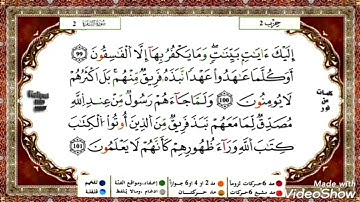 حزب 2
سورة البقرة 2
إِلَيْكَ ءَايَٰتٍۭ بَيِّنَٰتٍ وَمَا يَكْفُرُ بِهَآ إِلَّا ٱلْفَٰسِقُونَ 99
أَوَكُلَّمَا عَٰهَدُوا۟ عَهْدًا نَّبَذَهُۥ فَرِيقٌ مِّنْهُم بَلْ أَكْثَرُهُمْ
لَا يُومِنُونَ 100 وَلَمَّا جَآءَهُمْ رَسُولٌ مِّنْ عِندِ ٱللَّهِ
مُصَدِّقٌ لِّمَا مَعَهُمْ نَبَذَ فَرِيقٌ مِّنَ ٱلَّذِينَ أُوتُوا۟ ٱلْكِتَٰبَ
كِتَٰبَ ٱللَّهِ وَرَآءَ ظُهُورِهِمْ كَأَنَّهُمْ لَا يَعْلَمُونَ 101
مد 6 حركات لزوما
مد 2 او 4 او 6 جوازا
إخفاء، ومواقع الغنة
تفخيم
مد مشبع 6 حركات
مد حركتان
إدغام، وما لا يلفظ
قلقلة
Made With
VideoShow